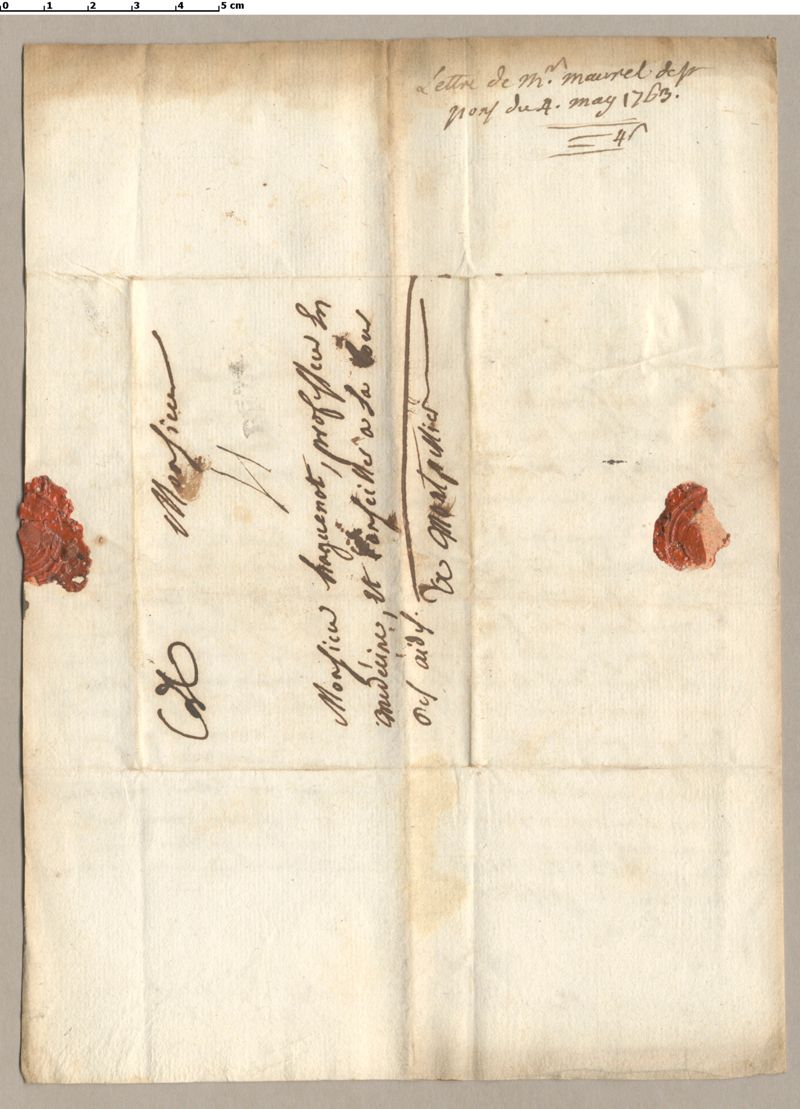 0 1 2 3 4 5 cm
Lettre de Mr. maurel de st
pons du 4. may 1763.
4
Monsieur
Monsieur haguenot, professeur En
médecine, et Conseiller a la Cour
des aides. De Montpellier